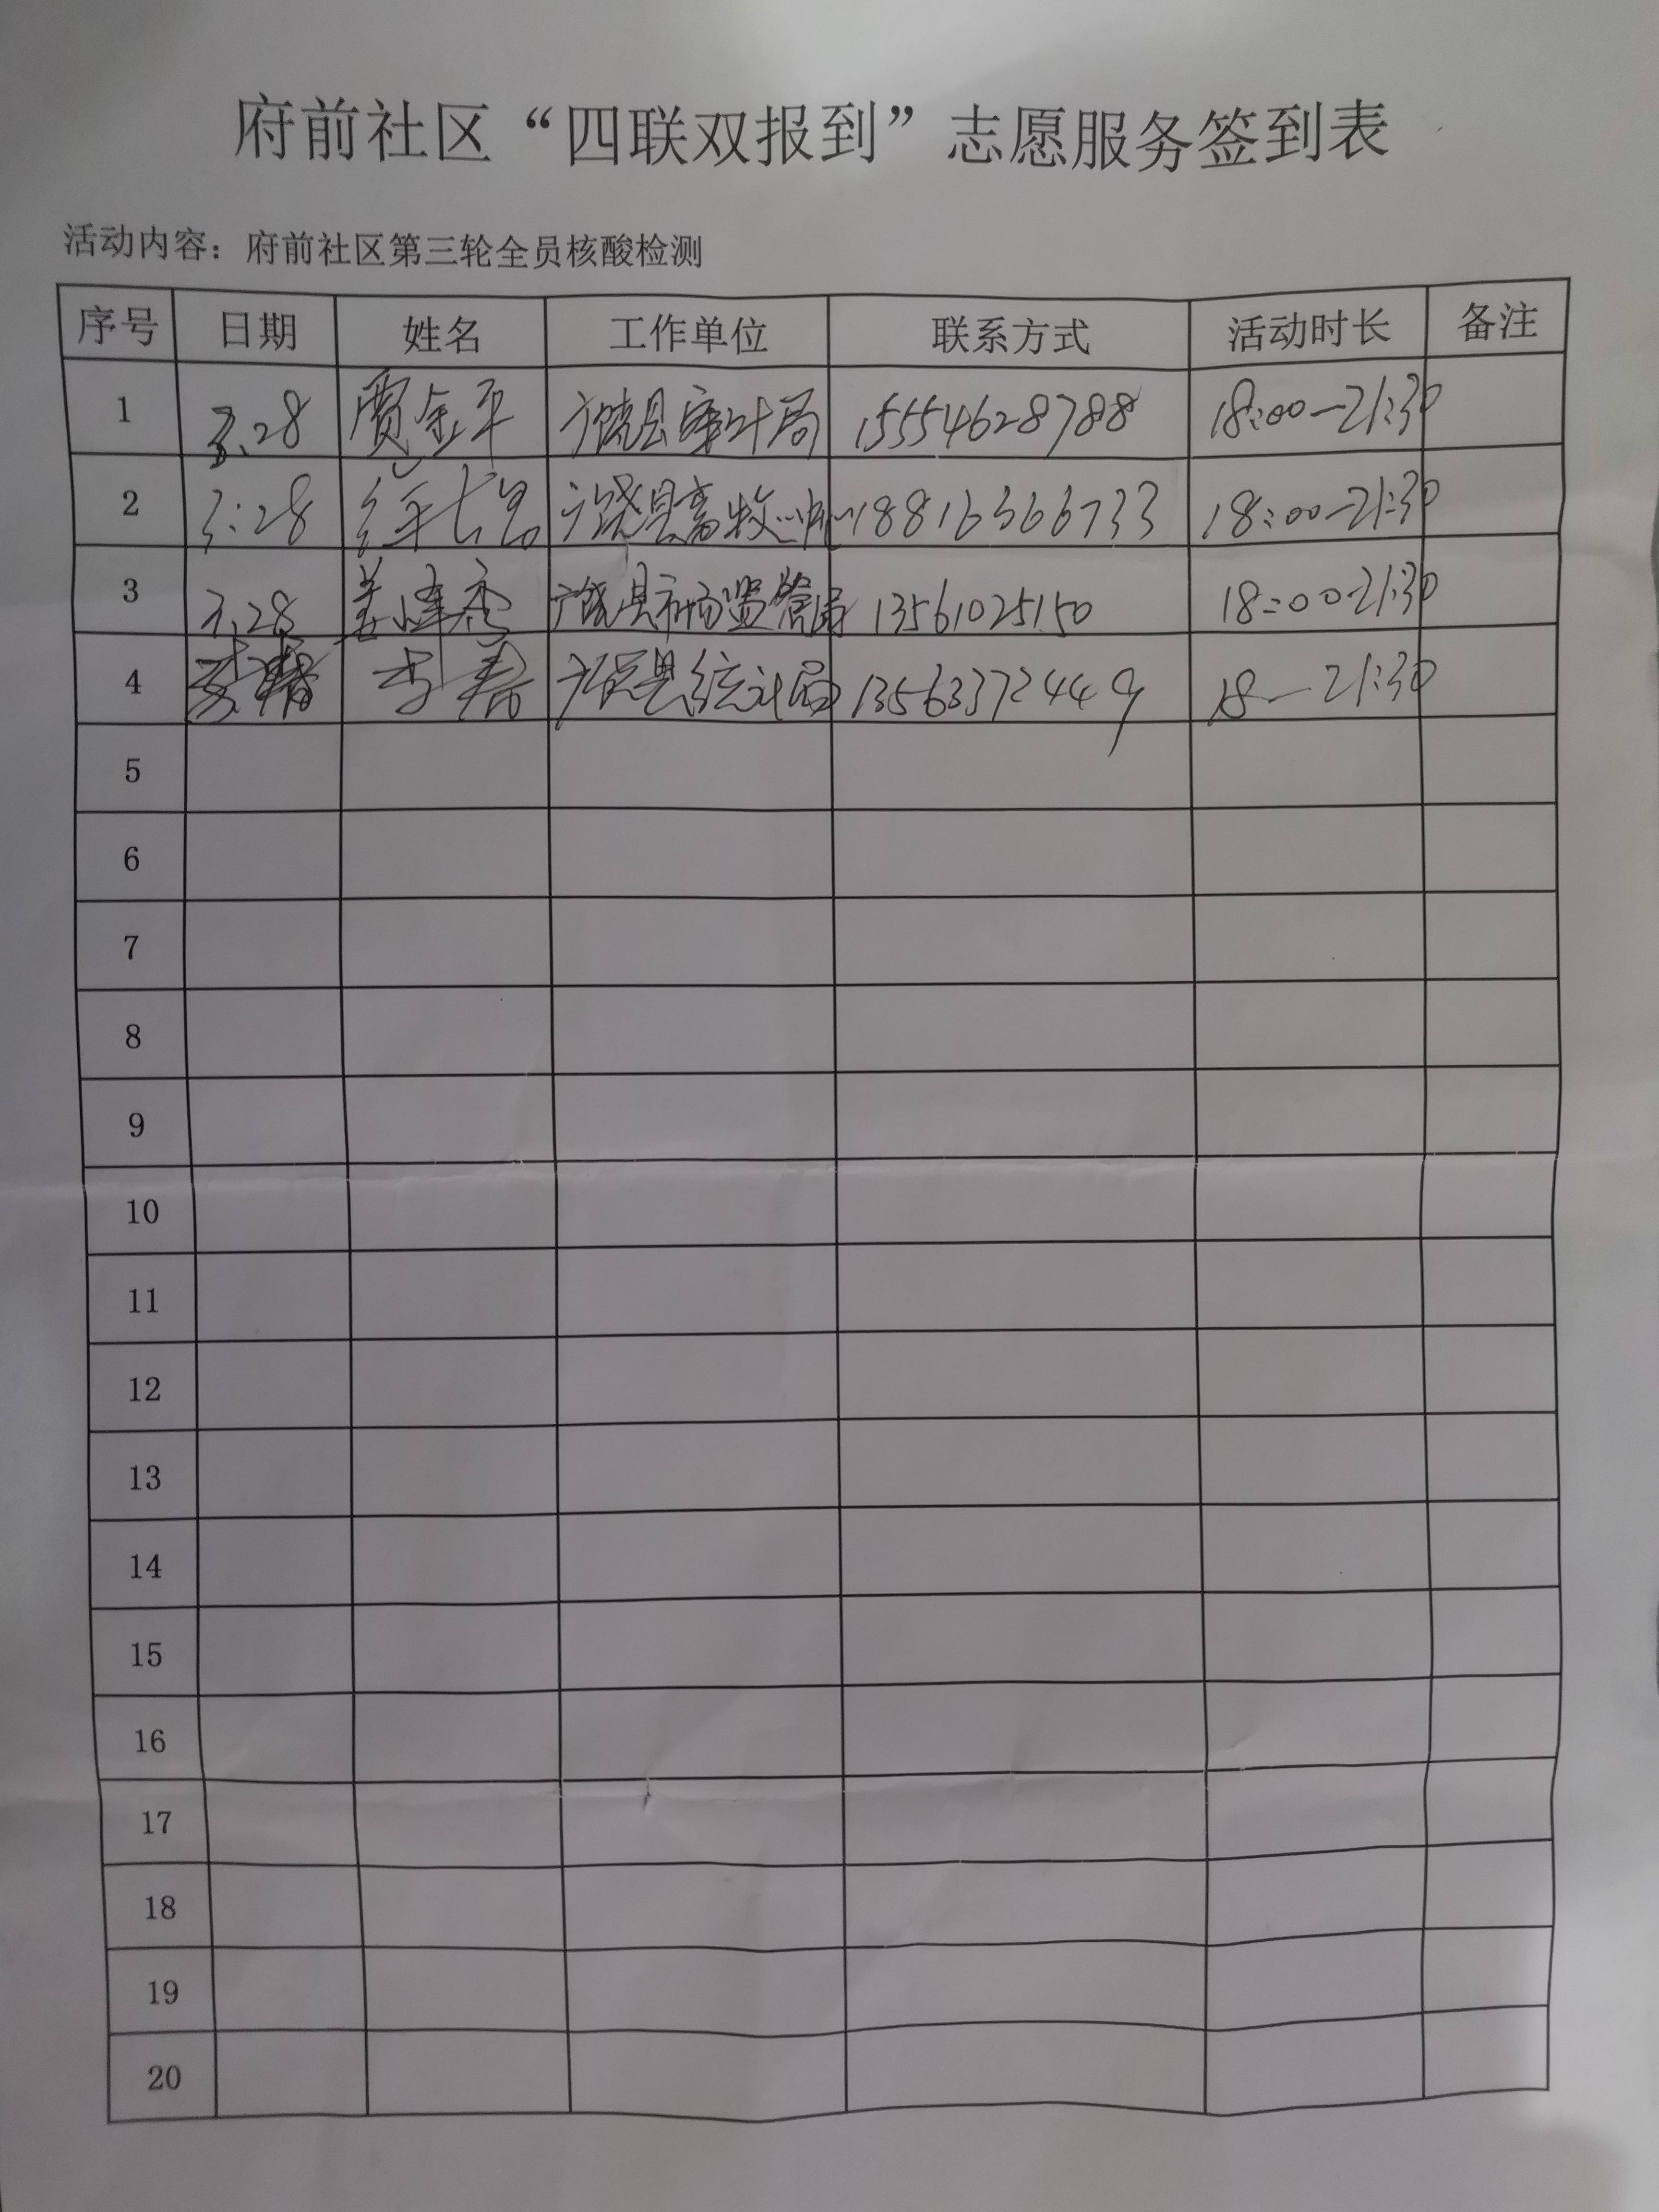 府前社区“四联双报到”志愿服务签到表
活动内容：府前社区第三轮全员核酸检测
序号 日期 姓名 工作单位 联系方式 活动时长 备注
1 3.28 贾金平 广饶县审计局 15554628788 18:00-21:30
2 3.28 广饶县畜牧 18816366733 18:00-21:30
3 3.28 广饶县市场监管局 13561025150 18:00-21:30
4 李春 广饶县统计局 13563372449 18-21:30
5
6
7
8
9
10
11
12
13
14
15
16
17
18
19
20